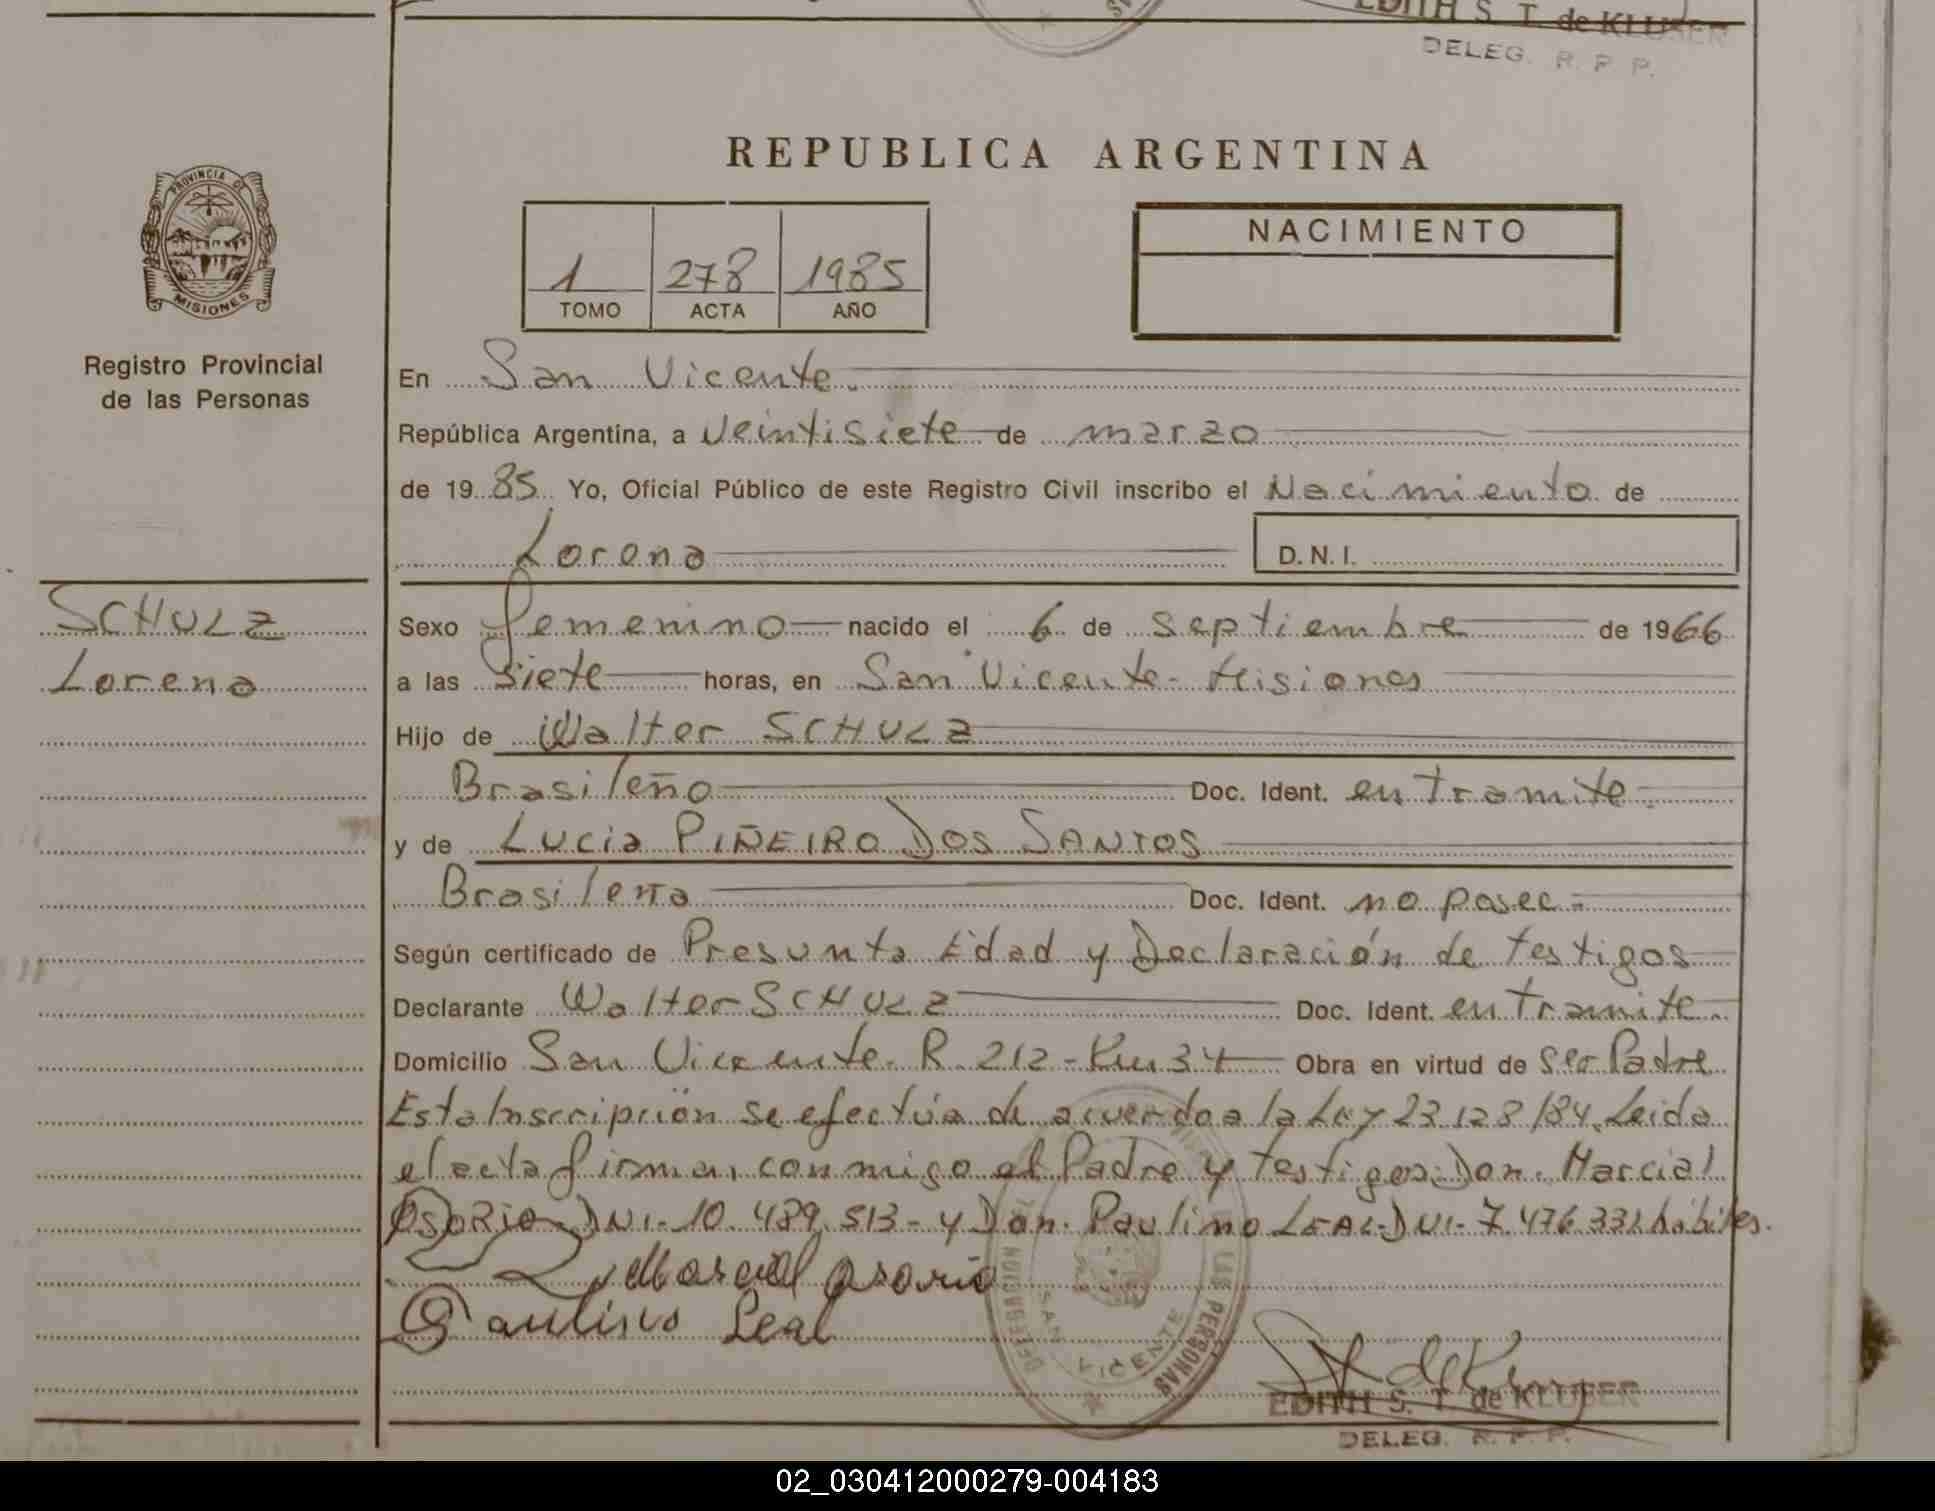 EDITH S. T. de KLUSER
DELEG. R. P. P.
REPUBLICA ARGENTINA
PROVINCIA DE
MISIONES
Registro Provincial
de las Personas
1 278 1985
TOMO ACTA AÑO
NACIMIENTO
En San Vicente.
República Argentina, a veintisiete de marzo
de 1985 Yo, Oficial Público de este Registro Civil inscribo el Nacimiento de
Lorena
D.N.I.
SCHULZ
Lorena
Sexo femenino nacido el 6 de septiembre de 1966
a las siete horas, en San Vicente - Misiones
Hijo de Walter SCHULZ
Brasileño Doc. Ident. en tramite.
y de Lucia PIÑEIRO DOS SANTOS
Brasileña Doc. Ident. no posee.-
Según certificado de Presunta Edad y Declaración de testigos
Declarante Walter SCHULZ Doc. Ident. en tramite.
Domicilio San Vicente. R. 212 - Km 34 Obra en virtud de ser Padre
Esta Inscripción se efectúa de acuerdo a la Ley 23.128/84. Leida
el acta firman, con migo el Padre y testigos: Don. Marcial
OSORIO - DNI - 10.489.513 - y Don. Paulino LEAL - DNI - 7.476.332 hábiles.
Marcial osorio
Paulino Leal
DELEGACION
LAS PERSONAS
SAN VICENTE
EDITH S. T. de KLUSER
DELEG. R. P. P.
02_030412000279-004183